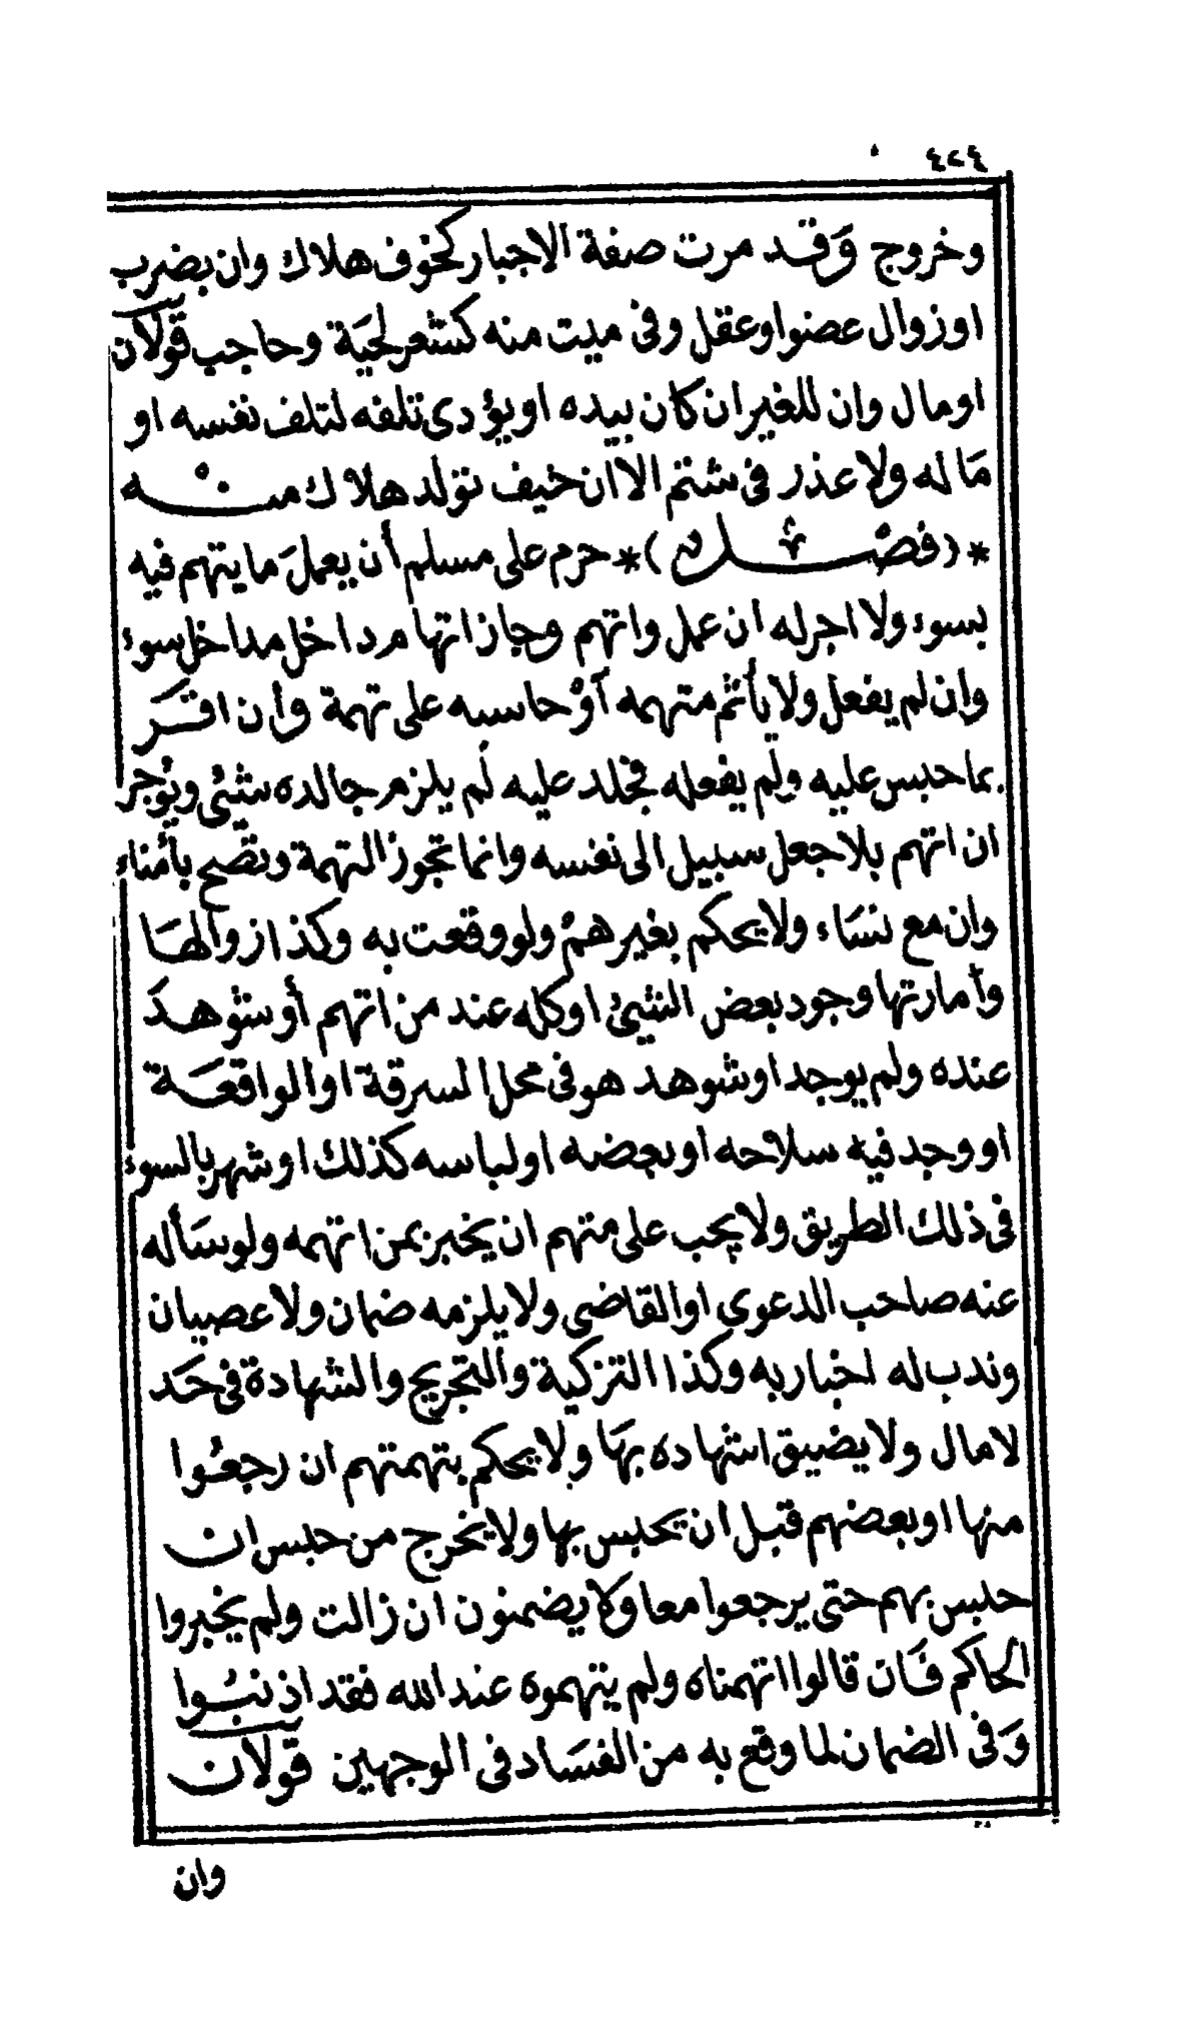 ٤٢٤
وخروج وَقد مرت صفة الاجبار كخوف هلاك وان بضرب
اوزوال عضوا وعقل وفى ميت منه كشعر لحيَة وحاجب قولان
اومال وان للغير ان كان بيده او يؤدى تلفه لتلف نفسه او
مَا له ولا عذر فى شتم الا ان خيف تولد هلاك منه
*(فصْل)* حرم على مسلم أن يعملَ ما يتهم فيه
بسوء ولا اجر له ان عمل واتهم وجاز اتهام داخل مداخل سوء
وان لم يفعل ولا يأثم متهمه أوْ حاسبه على تهمة وأن اقر
بما حبس عليه ولم يفعله فجلد عليه لم يلزم جالده شئ ويؤجر
ان اتهم بلا جعل سبيل الى نفسه وانما تجوز التهمة وتصح بأمناء
وان مع نسَاء ولا يحكم بغيرهمْ ولو وقعت به وكذا زوالهَا
وأمارتها وجود بعض الشئ او كله عند من اتهم أو شوهدَ
عنده ولم يوجد او شوهد هو فى محل السرقة او الواقعَة
او وجد فيه سلاحه او بعضه او لباسه كذلك او شهر بالسوء
فى ذلك الطريق ولا يجب على متهم ان يخبر بمن اتهمه ولو سَأله
عنه صاحب الدعوى او القاضى ولا يلزمه ضمان ولا عصيان
وندب له اخباربه وكذا التزكية والتجريح والشهادة فى حَد
لا مال ولا يضيق اشهاده بهَا ولا يحكم بتهمتهم ان رجعُوا
منها او بعضهم قبل ان يحبس بها ولا يخرج من حبس ان
حبس بهم حتى يرجعوا معا ولا يضمنون ان زالت ولم يخبروا
الحاكم فَان قالوا اتهمناه ولم يتهموه عند الله فقد اذنبُوا
وَفى الضمان لما وقع به من الفسَاد فى الوجهين قولان
وان